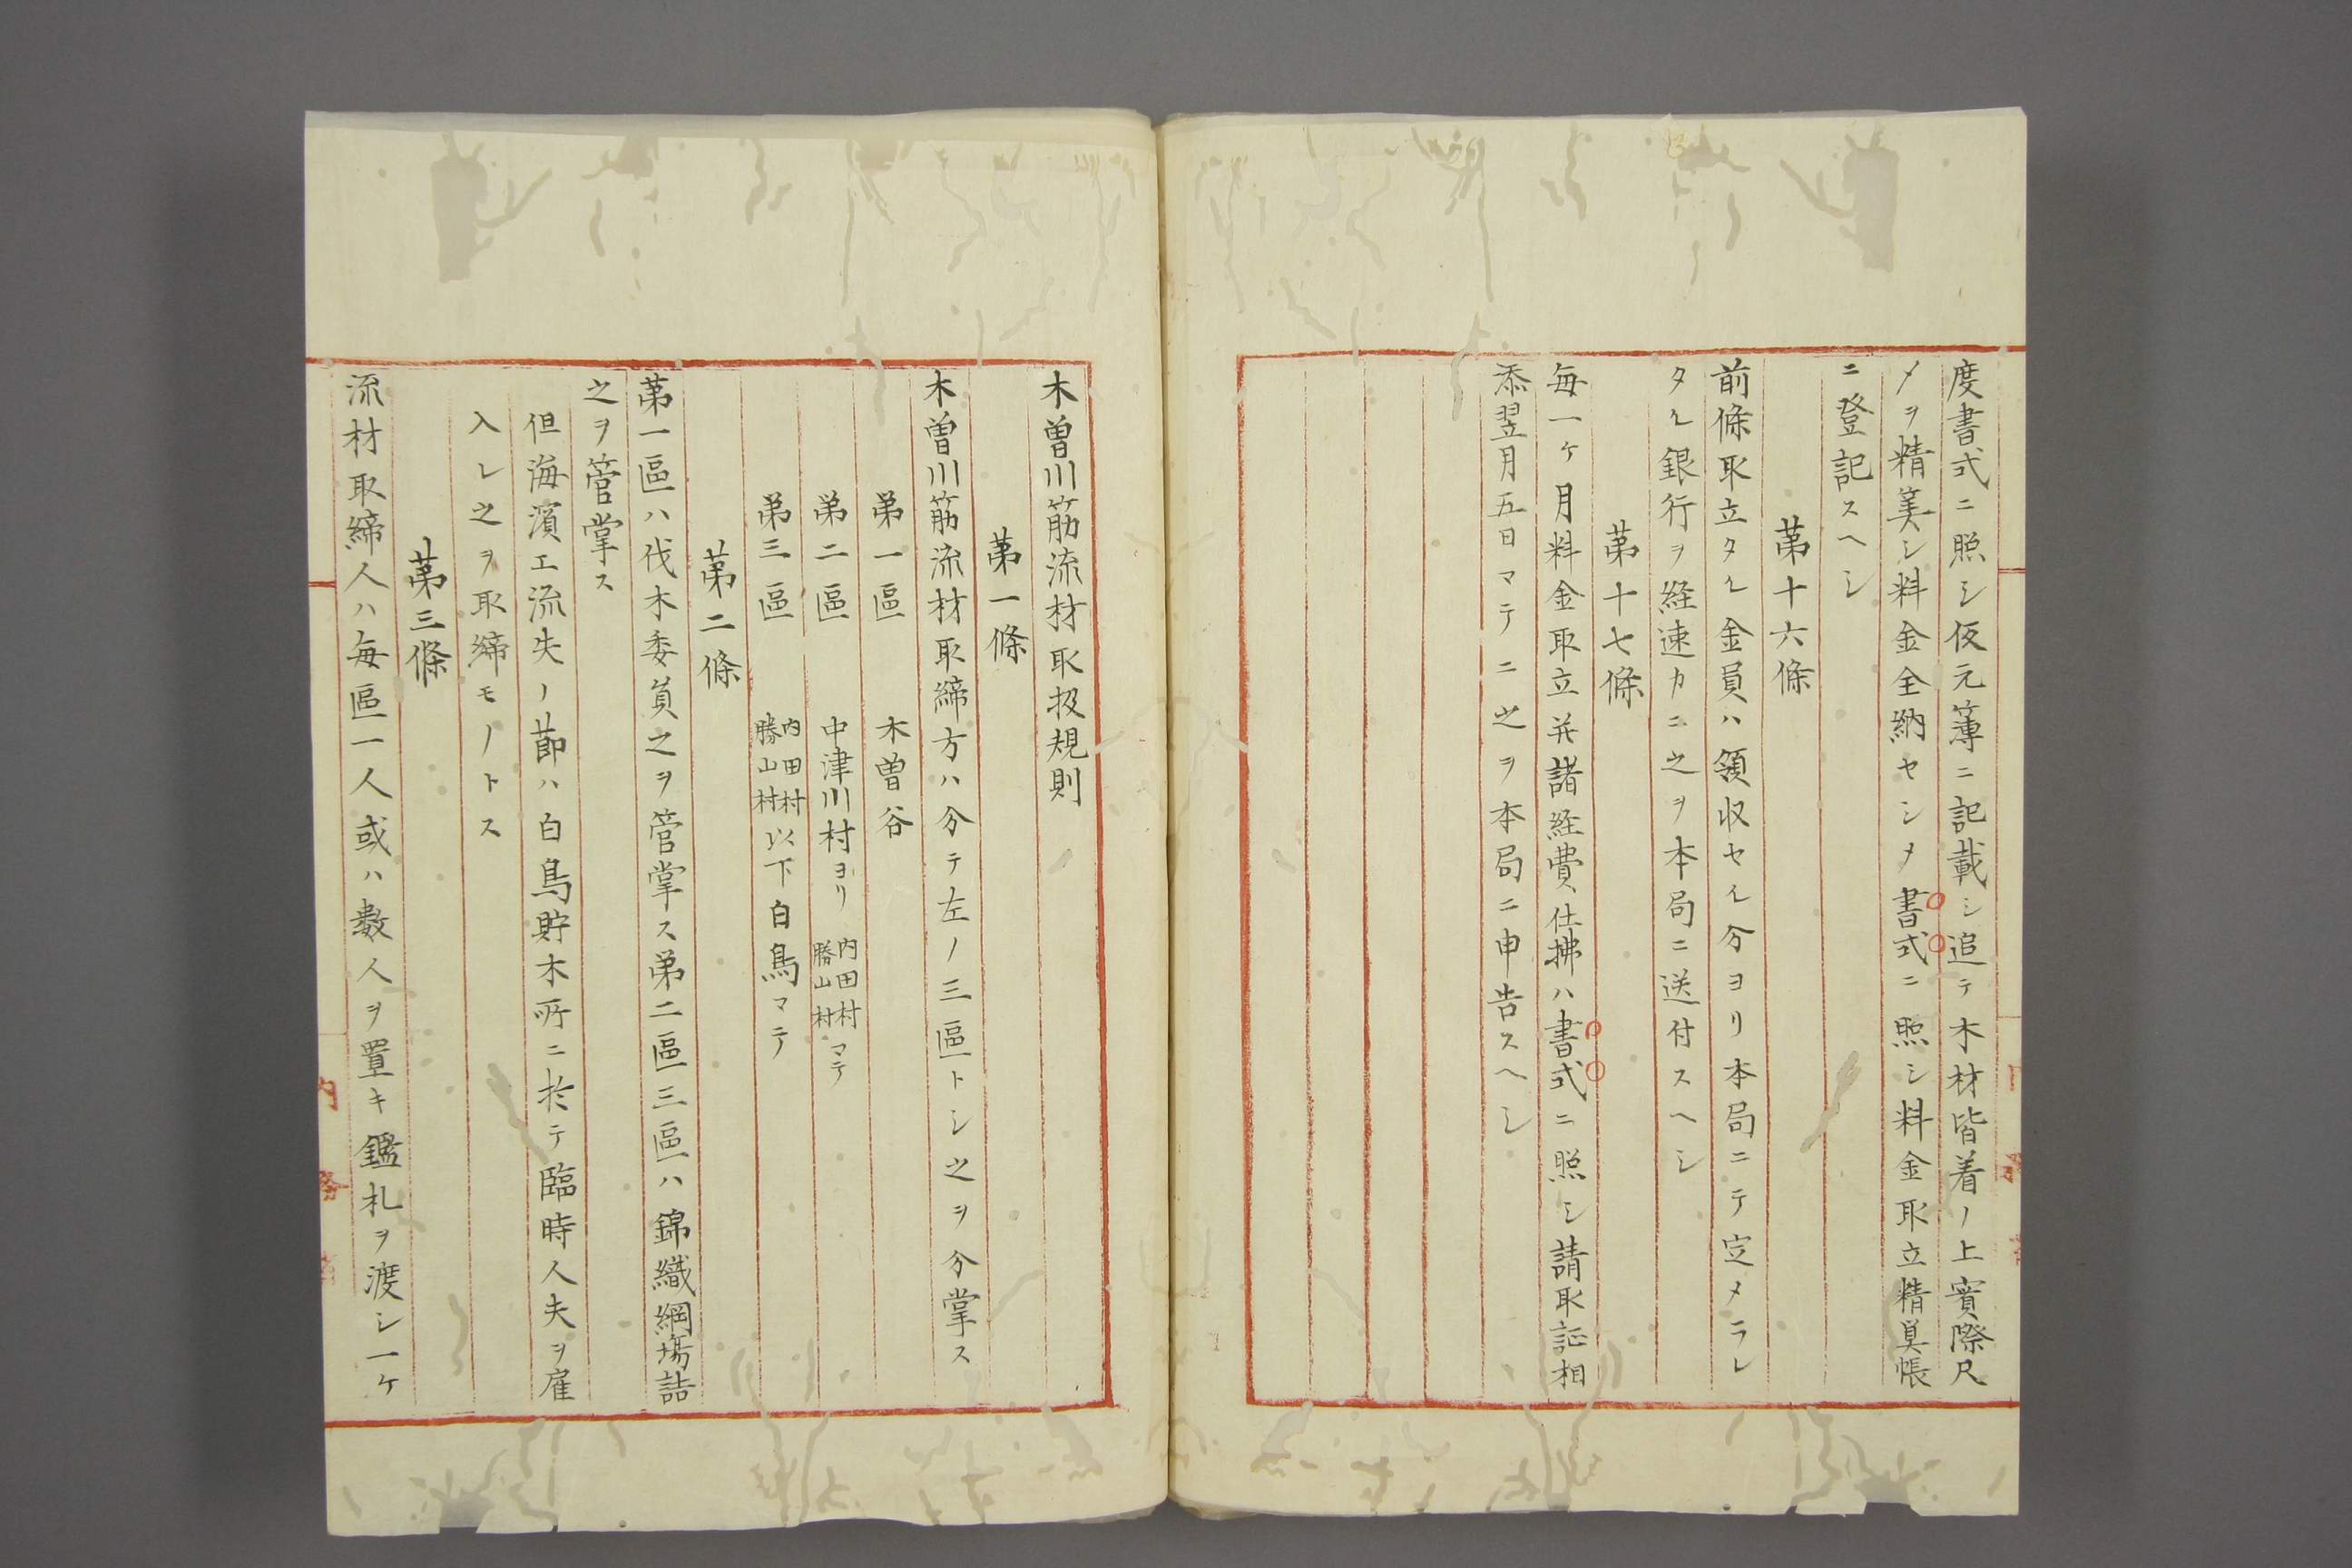 度書式ニ照シ仮元簿ニ記載シ追テ木材皆着ノ上實際尺
メヲ精筭シ料金全納セシメ書式ニ照シ料金取立精算帳
ニ登記スヘシ
第十六條
前條取立タル金員ハ領収セル分ヨリ本局ニテ定メラレ
タル銀行ヲ経速カニ之ヲ本局ニ送付スヘシ
第十七條
毎一ケ月料金取立并諸経費仕拂ハ書式ニ照シ請取証相
添翌月五日マテニ之ヲ本局ニ申告スヘシ
木曽川筋流材取扱規則
第一條
木曽川筋流材取締方ハ分テ左ノ三區トシ之ヲ分掌ス
第一區 木曽谷
第二區 中津川村ヨリ内田村勝山村マテ
第三區 内田村勝山村以下白鳥マテ
第二條
第一區ハ伐木委員之ヲ管掌ス第二區三區ハ錦織綱場詰
之ヲ管掌ス
但海濱エ流失ノ節ハ白鳥貯木所ニ於テ臨時人夫ヲ雇
入レ之ヲ取締モノトス
第三條
流材取締人ハ毎區一人或ハ数人ヲ置キ鑑札ヲ渡シ一ケ